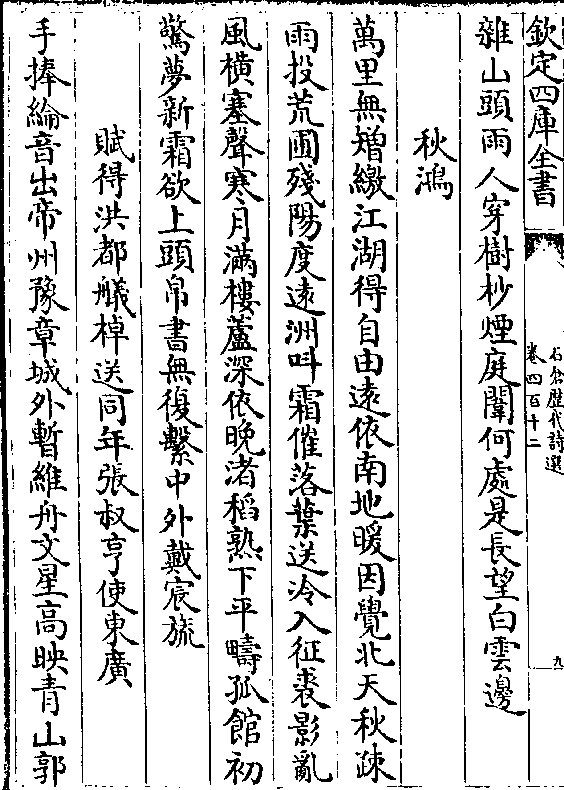 欽定四庫全書
石倉歷代詩選
卷四百十二
九
雜山頭雨人穿樹杪煙庭闈何處是長望白雲邊
秋鴻
萬里無矰繳江湖得自由遠依南地暖因覺北天秋疎
雨投荒圃殘陽度遠洲呌霜催落葉送冷入征裘影亂
風橫塞聲寒月滿樓蘆深依晚渚稻熟下平疇孤館初
驚夢新霜欲上頭帛書無復繫中外戴宸旒
賦得洪都艤棹送同年張叔亨使東廣
手捧綸音出帝州豫章城外暫維舟文星高映青山郭